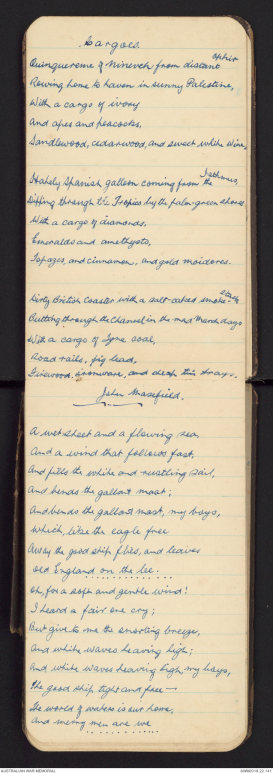 Cargoes.
Quinquereme of Nineveh from distant Ophir
Rowing home to haven in sunny Palestine,
With a cargo of ivory
And apes and peacocks,
Sandlewood, cedarwood, and sweet white wine.
Stately Spanish galleon coming from the Isthmus,
Dipping through the Tropics by the palm-green shores
With a cargo of diamonds,
Emeralds and amethysts,
Topazes, and cinnamon, and gold moidores.
Dirty British Coaster with a salt caked smoke-stack
Butting through the Channel in the mad March days
With a cargo of Tyne coal,
Road rails, pig lead,
Firewood, ironware, and cheap tin trays.
John Masefield.
A wet sheet and a flowing sea,
And a wind that follows fast,
And fills the white and rustling sail,
And bends the gallant mast;
And bends the gallant mast, my boys,
Which, like the eagle free
Away the good ship flies, and leaves
old England on the lee.
Oh, for a soft and gentle wind!
I heard a fair one cry;
But give to me the snorting breeze,
And white waves heaving high;
And white waves heaving high, my boys,
The good ship tight and free—
The world of waters is our home,
And merry men are we
AUSTRALIAN WAR MEMORIAL